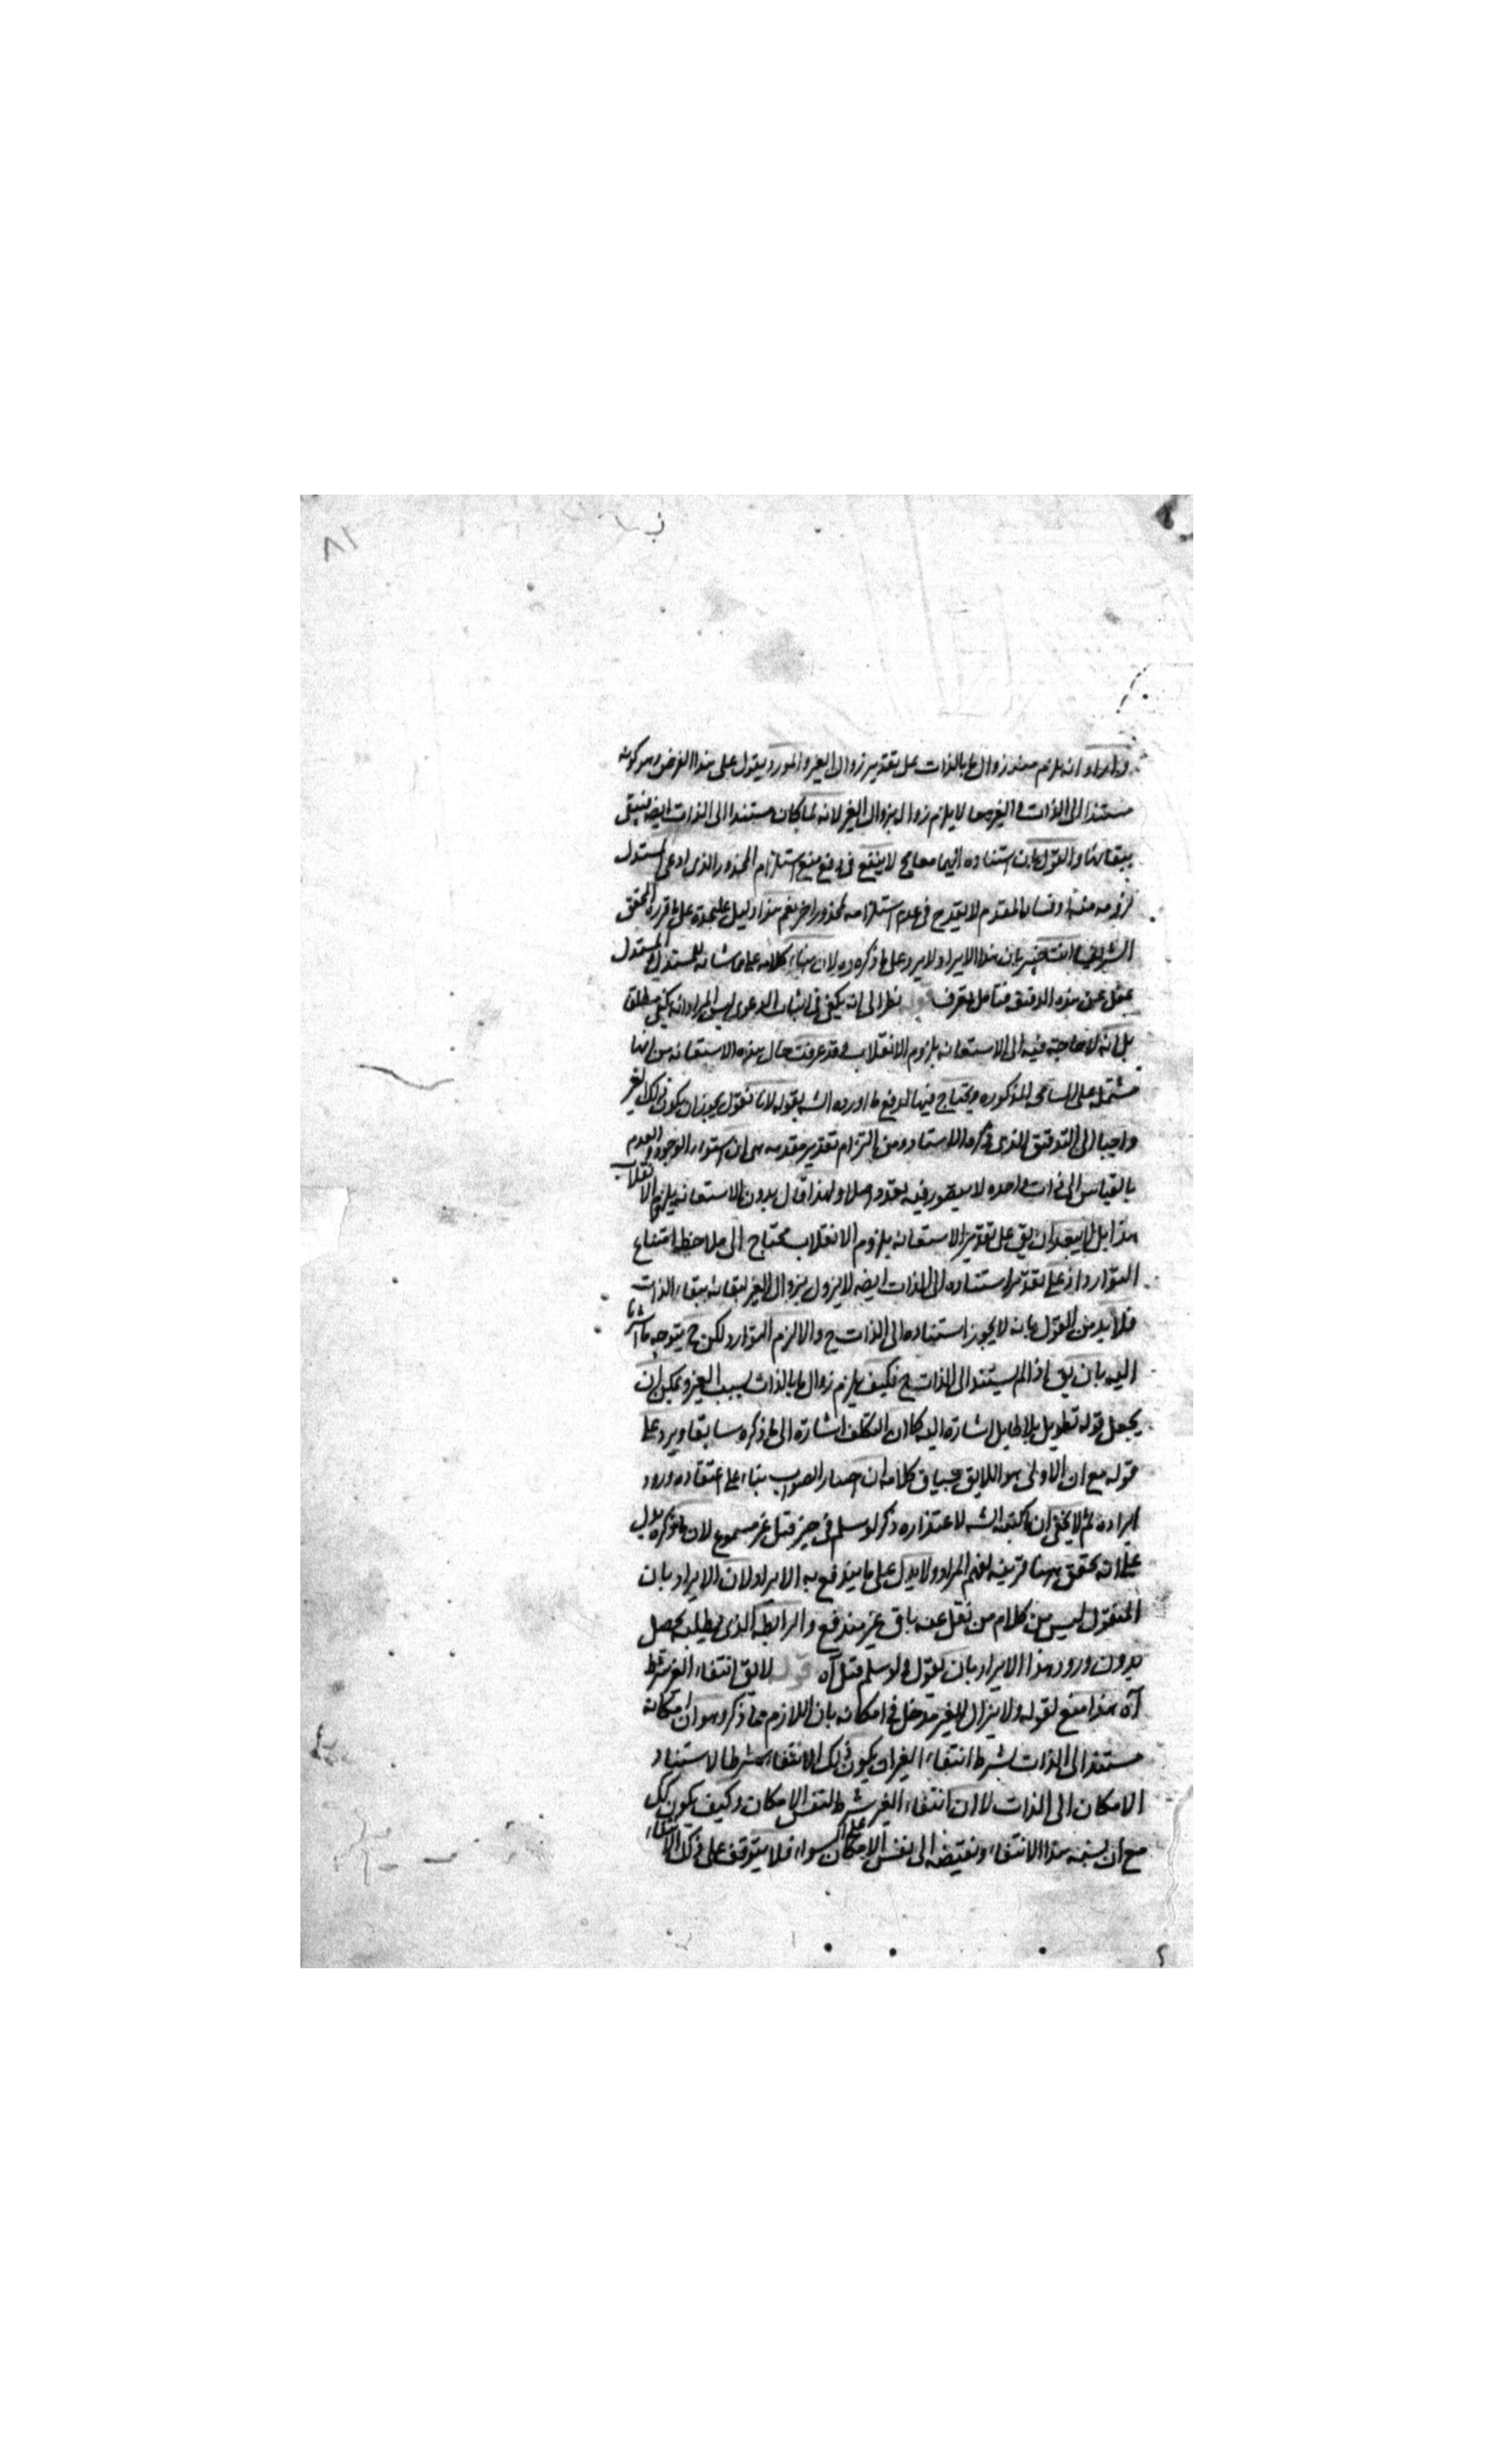 وان اراد انه يلزم منه زوال ما بالذات على تقدير زوال الغير والمورد يقول على هذا الفرض وهو كونه
مستندا الى الذات والغير معا لا يلزم زواله بزوال الغير لانه لما كان مستندا الى الذات ايضه فيبقى
ببقائها والقول بان استناده اليهما معا مح لا ينفع فى دفع منع استلزام المحذور الذى ادعى المستدل
لزومه منه اذ فساد المقدم لا يقدح فى عدم استلزامه لمحذور اخر نعم هذا دليل عليحدة على ما قرره المحقق
الشريف انت خبير بان هذا الايراد لا يرد على ما ذكره لان بناء كلامه على المستدل
غفل عن هذه الدقيقة فتأمل تعرف نظرا الى انه يكفى فى اثبات الدعوى ليس المراد انه يكفى مطلقا
بل انه لا حاجة فيه الى الاستعانه بلزوم الانقلاب وقد عرفت حال هذه الاستعانه من انها
مشتمل على المذكوره ويحتاج فيها لدفع ما اورده الشه بقوله لانا نقول يجوز ان يكون ذلك الغير
واجبا الى التدقيق الذى ذكره الاستاد ومن التزام تقدير مقدمه هى ان استواء الوجود والعدم
بالقياس الى ذات واحده لا يتصور فيه تعدد اصلا ولهذا قال بدون الاستعانه بلزوم الانقلاب
هذا بل لا يبعد ان يق على تقدير الاستعانه بلزوم الانقلاب يحتاج الى ملاحظه امتناع
التوارد اذ على تقدير استناده الى الذات ايضه لا يزول بزوال الغير لبقائه ببقاء الذات
فلا بد من القول بانه لا يجوز استناده الى الذات ح والا لزم التوارد لكن ح يتوجه ما اشرنا
اليه بان يق اذا لم يستند الى الذات ح فكيف يلزم زوال ما بالذات بسبب الغير ويمكن ان
يجعل قوله تطويل بلا طايل اشارة اليه كما ان التكلف اشارة الى ما ذكره سابقا ويرد على
قوله مع ان الاولى هو اللايق بسياق كلامه ان اصدار الصواب بناء على اعتقاده ورود
ايراده ثم لا يخفى ان ما كتبه الشه لاعتذاره ذكر لو سلم فى حيز قيل غير مسموع لان ما ذكره يدل
على انه تحقق ههنا قرينه لفهم المراد ولا يدل على ما يندفع به الايراد لان الايراد بان
المنقول ليس من كلام من نقل عنه باق غير مندفع والرابطه الذى يطلبه يحصل
بدون ورود هذا الايراد بان يقول ولو سلم قيل آه قوله لا يق انتفاء الغير شرط
آه هذا منع لقوله ولا يزال للغير مدخل فى امكانه بان اللازم مما ذكر وهو ان امكانه
مستند الى الذات بشرط انتفاء الغير ان يكون ذلك الانتفاء شرطا لاستناد
الامكان الى الذات لا ان انتفاء الغير شرط لنفس الامكان وكيف يكون كك
مع ان نسبة هذا الانتفاء ونقيضه الى نفس الامكان على السواء فلا يتوقف على ذلك الانتفاء